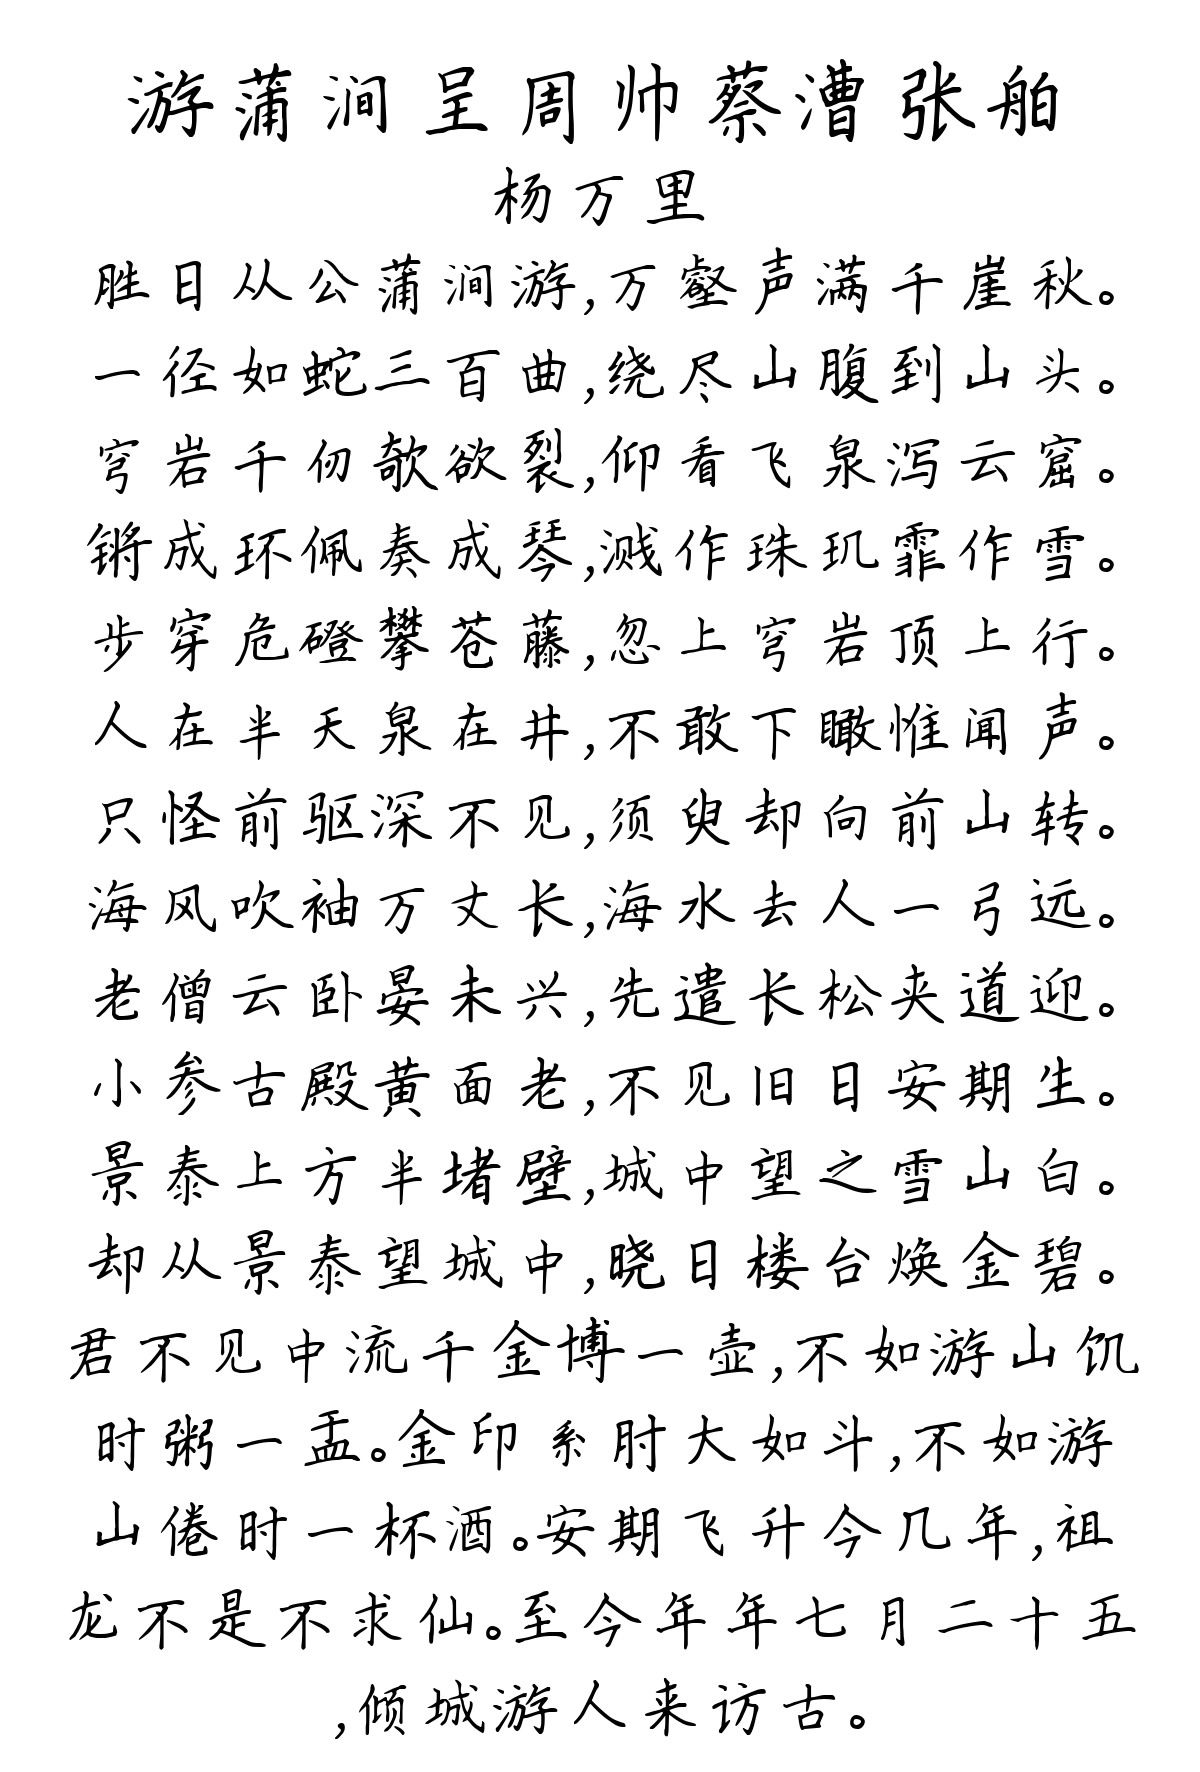 游蒲涧呈周帅蔡漕张舶
杨万里
胜日从公蒲涧游,万壑声满千崖秋。
一径如蛇三百曲,绕尽山腹到山头。
穹岩千仞欹欲裂,仰看飞泉泻云窟。
锵成环佩奏成琴,溅作珠玑霏作雪。
步穿危磴攀苍藤,忽上穹岩顶上行。
人在半天泉在井,不敢下瞰惟闻声。
只怪前驱深不见,须臾却向前山转。
海风吹袖万丈长,海水去人一弓远。
老僧云卧晏未兴,先遣长松夹道迎。
小参古殿黄面老,不见旧日安期生。
景泰上方半堵壁,城中望之雪山白。
却从景泰望城中,晓日楼台焕金碧。
君不见中流千金博一壶,不如游山饥
时粥一盂。金印系肘大如斗,不如游
山倦时一杯酒。安期飞升今几年,祖
龙不是不求仙。至今年年七月二十五
,倾城游人来访古。